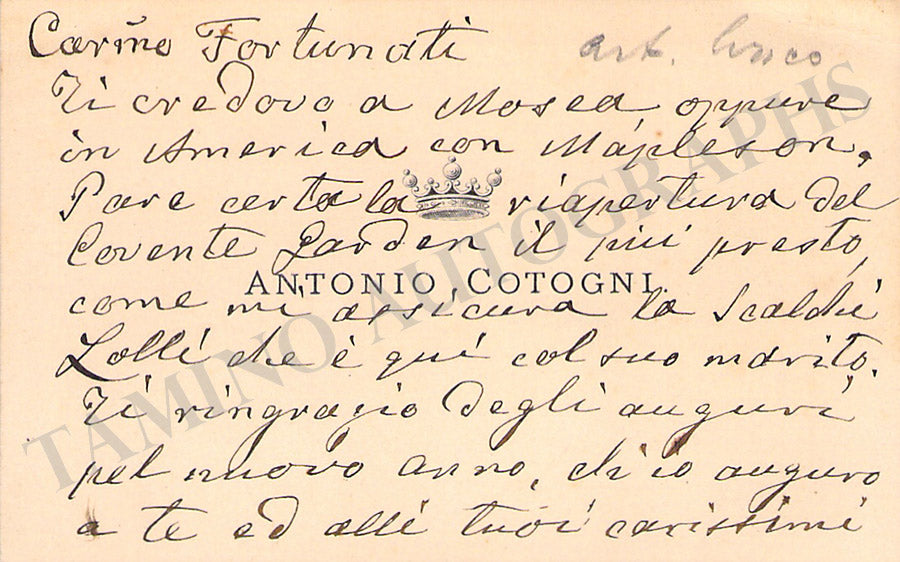 Carmo Fortunati art. lirico
Ti credovo a Mosca, oppure
in America con Mapleson,
Pare certa la riapertura del
Covente Garden il piú presto,
ANTONIO COTOGNI.
come mi assicura la Scalchi
Lolli che è quí col suo marito.
Ti ringrazio degli auguri
pel nuovo anno, ch'io auguro
a te ed alli tuoi carissimi
TAMINO AUTOGRAPHS